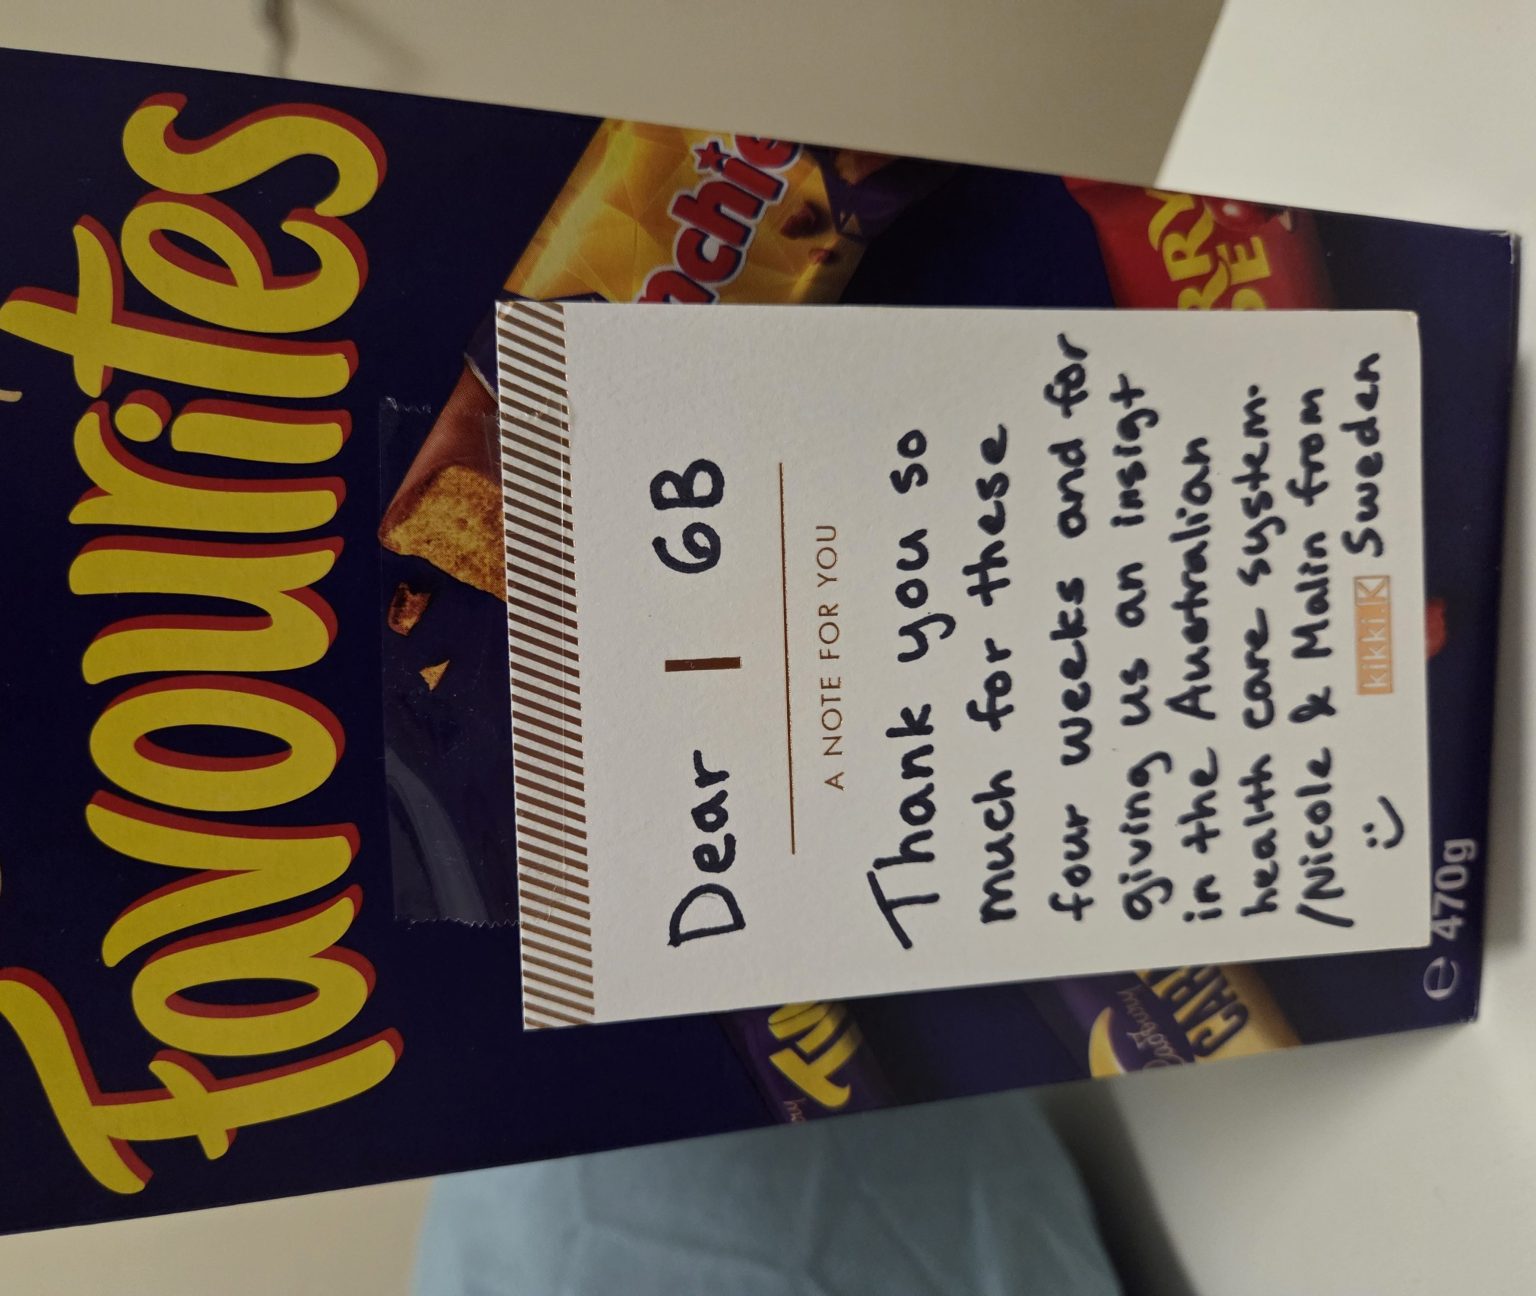 Favourites
nchie
RRY
PE
Dear | 6B
A NOTE FOR YOU
Thank you so
much for these
four weeks and for
giving us an insigt
in the Australian
health care system.
/Nicole & Malin from
:) kikki.K Sweden
Cadbury
CAR
e 470g